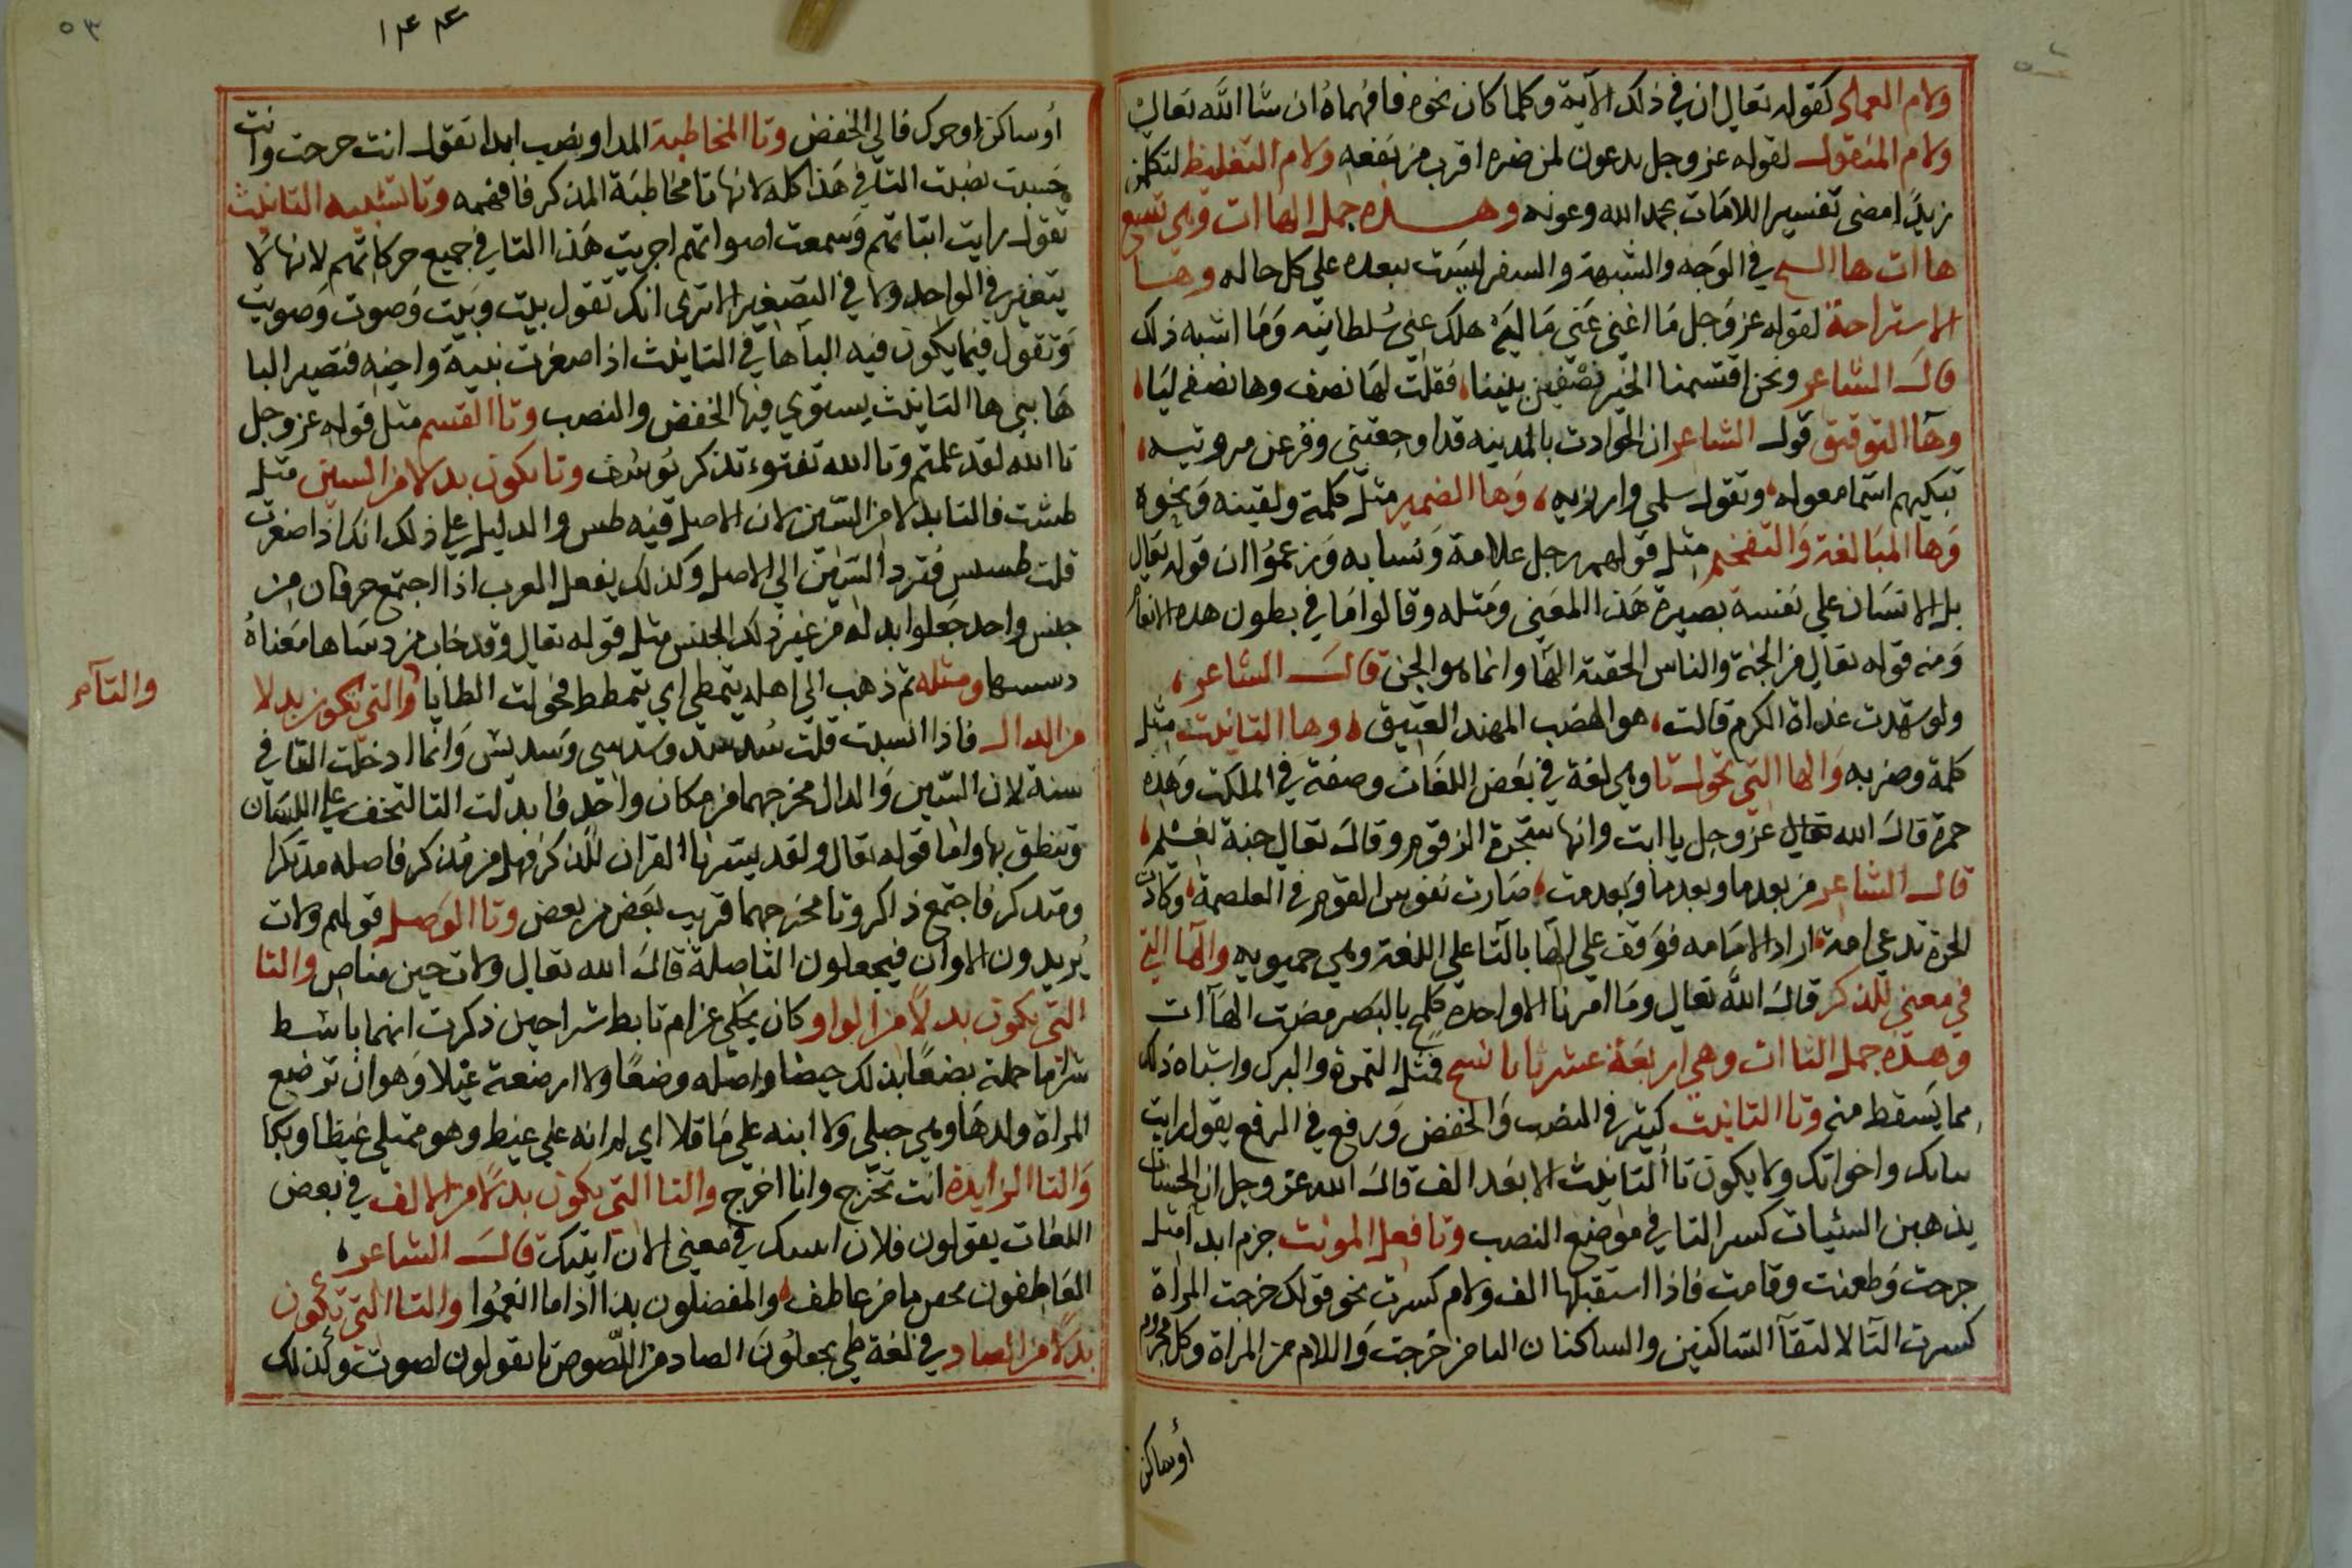 ولام العماد كقوله تعالى ان في ذلك الآية وكلما كان نحوه فافهماه ان شا الله تعالى
ولام المنقول لقوله عز وجل يدعون لمن ضره اقرب من نفعه ولام التغليظ
زيدًا مضى تفسير اللامات بحمد الله وعونه وهذه جمل الهاات وهي تسع
هاات ها السح في الوجه والشبهة والسفر ليست ببعده على كل حاله وها
الاستراحة لقوله عز وجل ما اغنى عني ماليه هلك عني سلطانيه وما اشبه ذلك
قال الشاعر ونحن اقتسمنا الخير نصفين بيننا، فقلت لها نصف وها نصف ليا،
وها التوقيق قول الشاعر ان الحوادث بالمدينه قد اوجعتني وقرعن مروتيه،
تبكيهم اسما معوله، وتقول سلمى وارزيه، وها الضمير مثل كلمة ولقينه ونحوه
وها المبالغة والتفخيم مثل قولهم رجل علامة ونسابه وزعموا ان قوله تعالى
بل الانسان على نفسه بصيرة هذا المعنى ومثله وقالوا ما في بطون هذه الانعام
ومنه قوله تعالى من الجنة والناس الحقته الها وانما هو الجن قال الشاعر،
ولو شهدت غداة الكرم قالت، هو الهضب المهند العتيق، وها التانيث مثل
كلمة وضربه والها التي تحول تا وهي لغة في بعض اللغات وصفة في الملكت وهذه
حمرة قال الله تعالى عز وجل يا ابت وانها شجرة الزقوم وقال تعالى جنة
قال الشاعر من بعدما وبعدما وبعدمت، صارت نفوس القوم في الغلصمة، وكادت
الحرة تدعى امة، اراد الامامه فوقف على الها بالتا على اللغة وهي حميريه والها التي
في معنى للذكر قال الله تعالى وما امرنا الا واحدة كلمح بالبصر مضت الهاآت
وهذه جمل التاات وهي اربعة عشر تا نا نسح فمثل التمرة والبرك واشباه ذلك
مما يسقط منه وتا التانيث كيثر في النصب والخفض ورفع في الرفع يقول رايت
بناتك واخواتك ولا يكون تا التانيث الا بعد الف قال الله عز وجل ان الحسنات
يذهبن السئيات كسر التا في موضع النصب وتا فعل المونث جزم ابدا مثل
جرحت وطعنت وقامت فاذا استقبلها الف ولام كسرت نحو قولك خرجت المراة
كسرت التا لالتقآ الساكنين والساكنان التا من خرجت واللام من المراة وكل مجزوم
أوساكن
١٤٤
٥٣
أوساكن او حرك فالي الخفض وتا المخاطبة المد او نصب ابدا تقول انت خرجت وانت
حسبت نصبت التا في هذا كله لانها تا مخاطبة المذكر فافهمه وتا تشبيه التانيث
تقول رايت ابتاتهم وسمعت اصواتهم اجريت هذا التا في جميع حركاتهم لانها لا
يتغير في الواحد ولا في التصغير الا ترى انك تقول بيت وبيت وصوت وصويت
وتقول فيما يكون فيه اليا ها في التانيث اذا صغرت بنية واخيه فتصير اليا
ها يبى ها التانيث يستوي فيها الخفض والنصب وتا القسم مثل قوله عز وجل
تا الله لقد علمتم وتا الله تفتوء تذكر يوسف وتا يكون بدلا من السين مثل
طست فالتا بدلا من السين لان الاصل فيه طس والدليل على ذلك انك اذا صغرت
قلت طسيس فترد السين الى الاصل وكذلك يفعل العرب اذا اجتمع حرفان من
جنس واحد جعلوا بدله من غير ذلك الجنس مثل قوله تعالى وقد خاب من دساها معناه
دسسها ومثله ثم ذهب الى اهله يتمطى اي يتمطط فحولت الطايا والتي تكون بدلا
والتآء
من الدال فاذا انسبت قلت سدسد وسدسي وسديس وانما ادخلت التا في
سته لان السين والدال مخرجهما من مكان واحد فابدلت التا لتخفف على اللسان
وتنطق بها واما قوله تعالى ولقد يسرنا القران للذكر فهل من مذكر فاصله مذتكرا
ومتدكر فاجتمع ذاكر وتا مخرجهما قريب بعض من بعض وتا الوصل قولهم ولات
يريدون الاوان فيجعلون التا صلة قال الله تعالى ولات حين مناص والتا
التي يكون بدلًا من الواو كان يحكى عن ام تابط شرا حين ذكرت انهما باشط
شرا ما حملته بضعًا بذلك حيضا واصله وضعًا ولا ارضعة غيلا وهو ان ترضع
المراة ولدها وهي حبلى ولا ابنه على ماقلا اي لم انه على غيط وهو ممتلى غيظا وبكا
والتا الزايدة انت تخرج وانا اخرج والتا التي يكون بدلًا من الالف في بعض
اللغات يقولون فلان في معنى الان اتيتك قال الشاعر،
العاطفون ما من عاطف، والمفضلون بذا اذا ما انعموا والتا التي تكون
بدلًا من الصاد في لغة طي يجعلون الصاد من اللصوص تا يقولون لصوت وكذلك